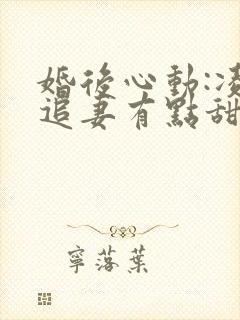 婚後心動:凌
追妻有點甜
寧落葉